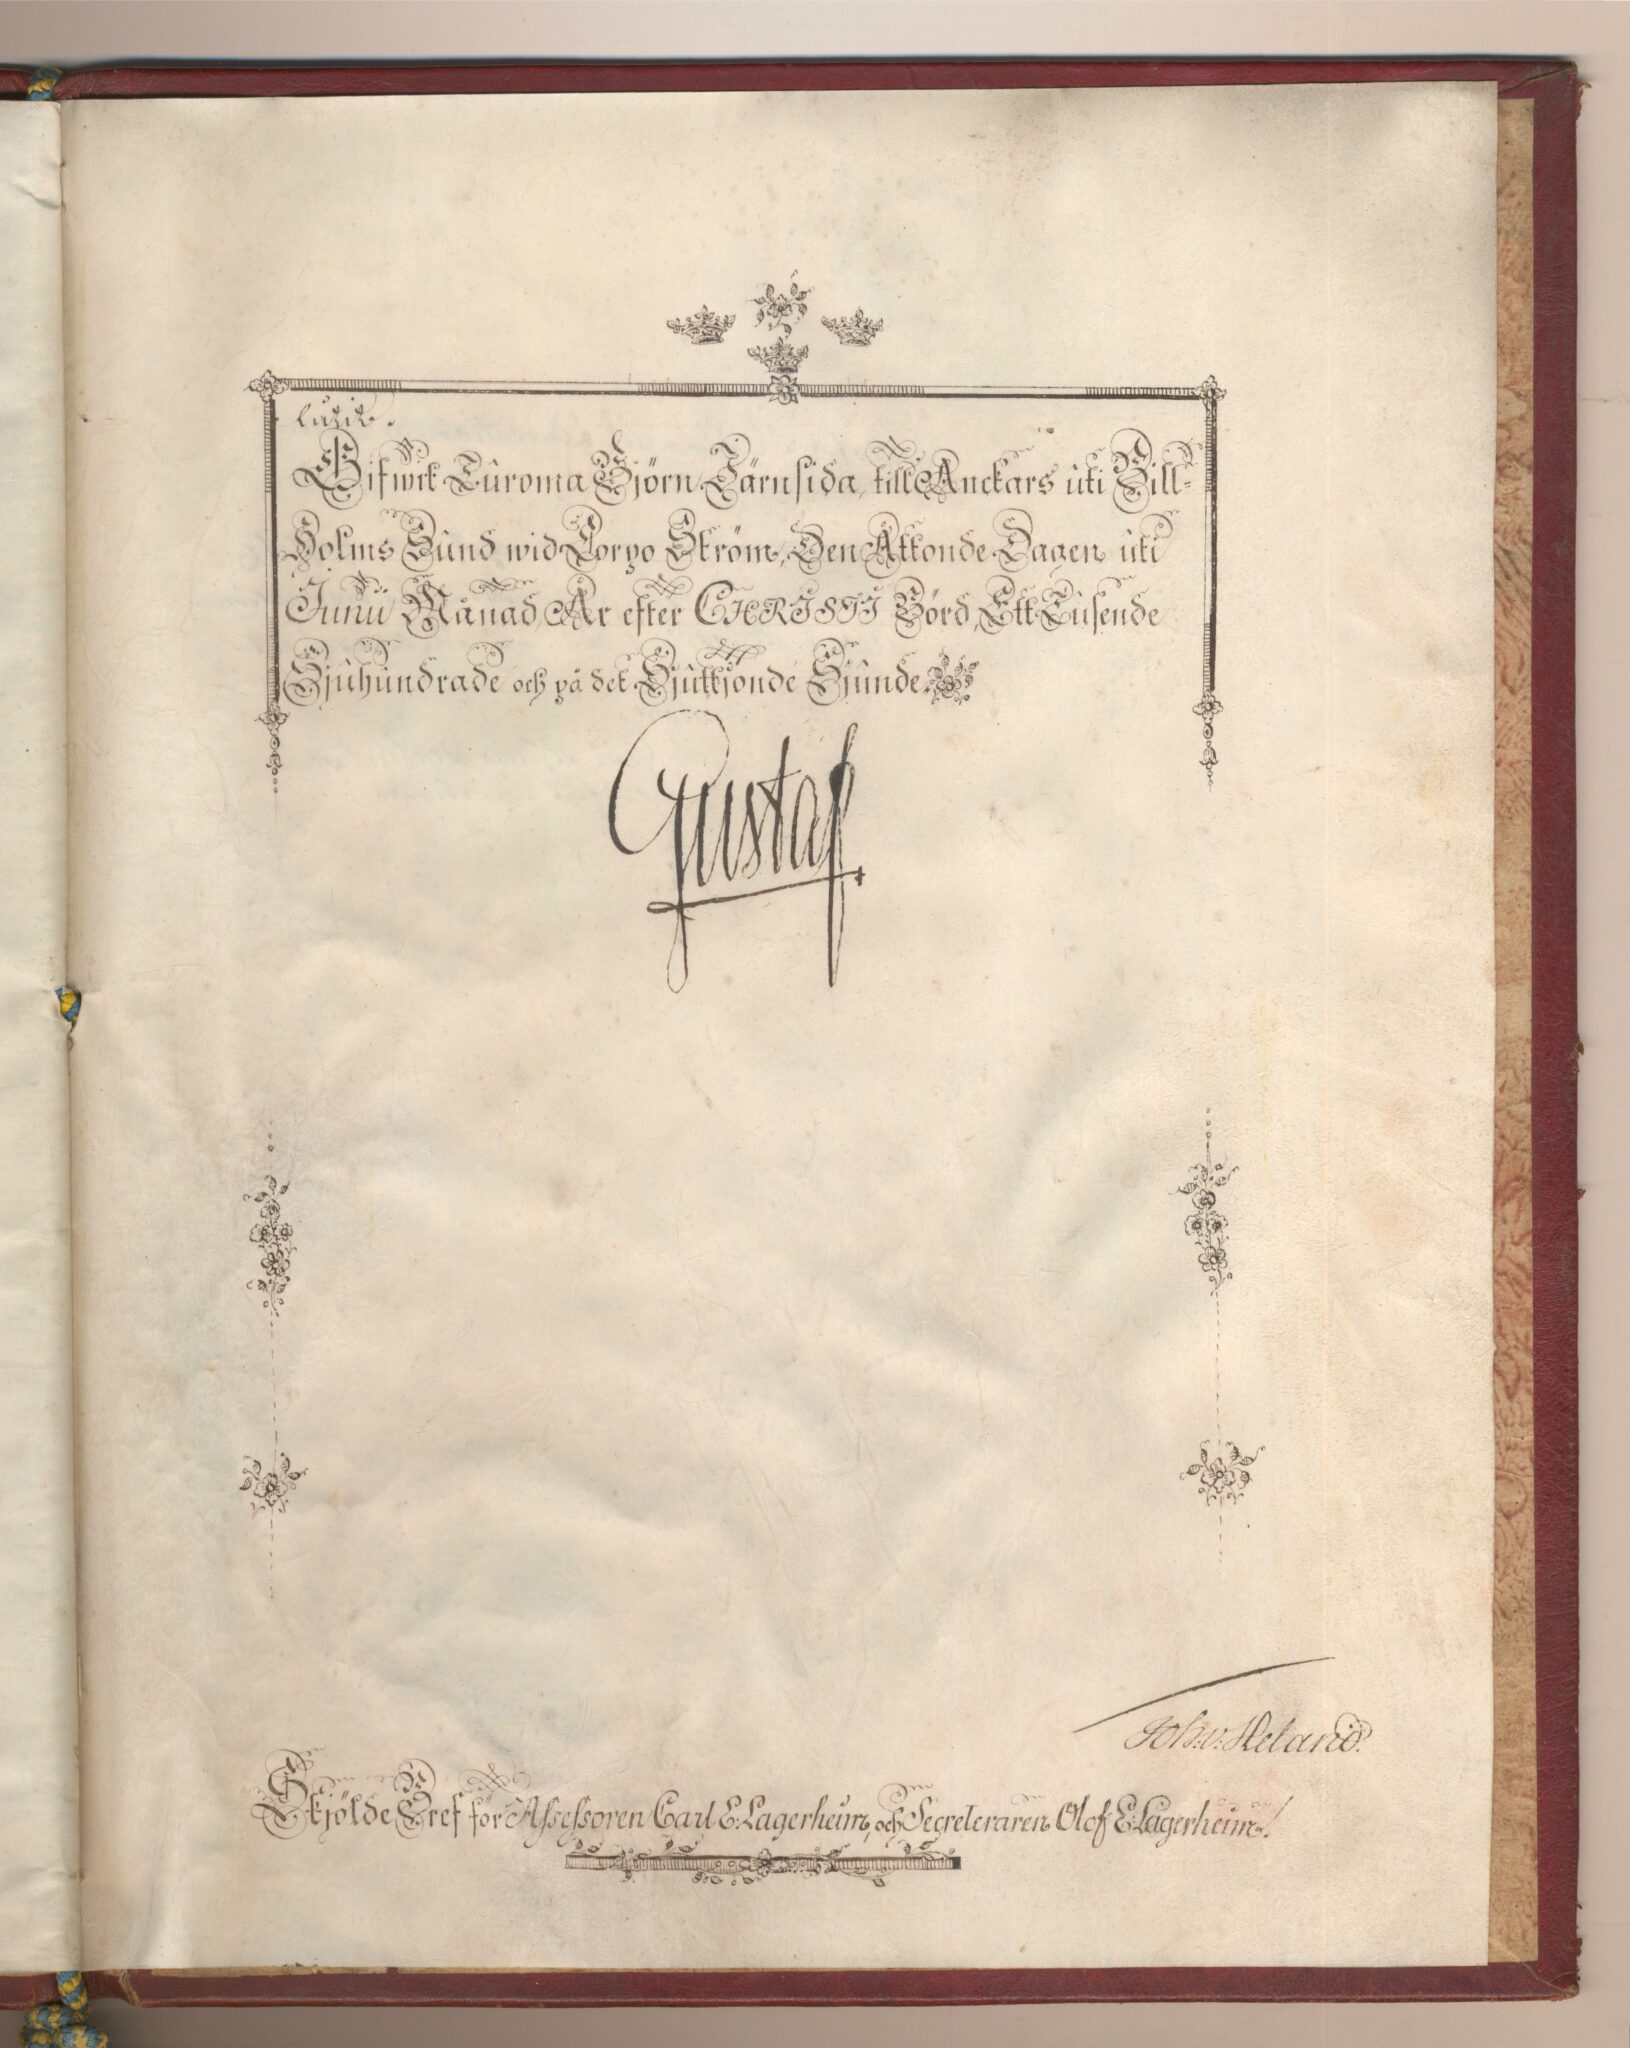 lätit.
Gifwit Turoma Björn Järnsida, till Anckars uti Bill-
Holms Sund wid Corpo Ström, Den Åttonde Dagen uti
Junii Månad, År efter CHRISTI Börd, Ett Tusende
Sjuhundrade och på det Sjuttjonde Sjunde.
Gustaf
Joh: v: Heland.
Skjölde Bref för Assessoren Carl E: Lagerheim, och Secreteraren Olof E: Lagerheim.